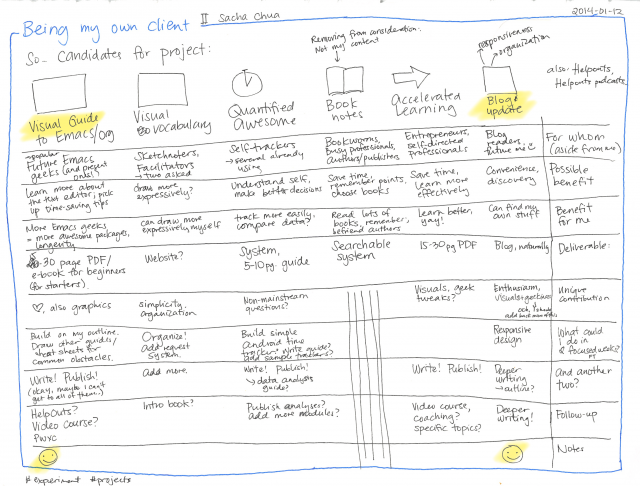 Being my own client II Sacha Chua
2014-01-12
So- Candidates for project:
Removing from consideration:
Not my content
responsiveness
organization
also- Helpouts,
Helpouts podcasts
Visual Guide
to Emacs/Org
Visual
vocabulary
Quantified
Awesome
Book
notes
Accelerated
Learning
Blog
update
→popular
Future Emacs
geeks (and present
ones!)
Sketchnoters,
Facilitators
→ Two asked
Self-trackers
→ several already
using
Bookworms,
busy professionals,
authors/publishers
Entrepreneurs,
self-directed
professionals
Blog
readers,
future me
For whom
(aside from me)
Learn more about
the text editor, pick
up time-saving tips
draw more
expressively?
Understand self,
make better decisions
Save time,
remember points,
choose books
Save time,
learn more
effectively
Convenience,
discovery
Possible
benefit
More Emacs geeks
= more awesome packages,
longevity
can draw more
expressively myself
track more easily.
compare data?
Read lots of
books, remember,
befriend authors
Learn better,
yay!
Can find my
own stuff
Benefit
for me
30 page PDF/
e-book for beginners
(for starters)
Website?
System,
5-10pg. guide
Searchable
system
15-30pg PDF
Blog, naturally
Deliverable:
♡, also graphics
simplicity.
organization
Non-mainstream
questions?
Visuals, geek
tweaks?
Enthusiasm,
visuals+geekiness
Unique
contribution
Build on my outline.
Draw other guides/
cheat sheets for
common obstacles.
Organize!
Add request
system.
Build simple
Android time
tracker? Write guide?
add sample trackers?
Responsive
design
What could
I do in
2 focused weeks?
Write! Publish!
(okay, maybe I can't
get to all of them...)
Add more.
Write! Publish!
↳ data analysis
guide?
Write! Publish!
Deeper
writing
→ outline?
And another
two?
Helpouts?
Video course?
PWYC
Intro book?
Publish analyses?
add more modules?
Video course,
coaching?
specific topics?
Deeper
writing!
Follow-up
Notes
#experiment #projects